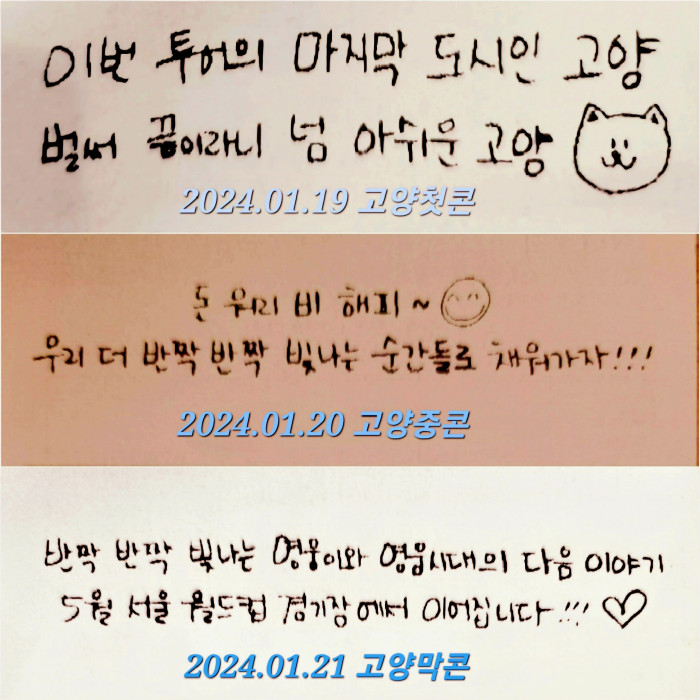 이번 투어의 마지막 도시인 고양
벌써 끔이라니 넘 아쉬운 고양
2024.01.19 고양첫콘
돈 워리 비 해피~
우리 더 반짝 반짝 빛나는 순간들로 채워가자!!!
2024.01.20 고양중콘
반짝 반짝 빛나는 영웅이와 영웅시대의 다음 이야기
5월 서울 월드컵 경기장에서 이어집니다!!!
2024.01.21 고양막콘